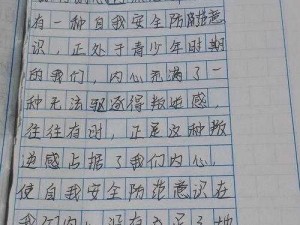 有一种自我安全防范意
识,正处于青少年时期
的我们,内心充满了一
种无法驱逐得叛逆感,
往往有时,正是这种叛
逆感占据了我们内心,
使自我安全防范意识在
我们内心没有立足之地